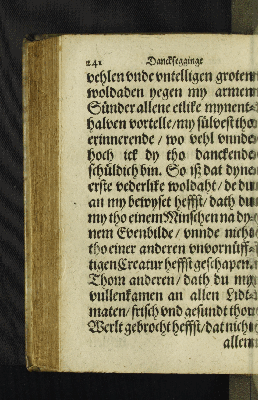 241 Dancksegginge
vehlen vnde vntelligen groten
woldaden yegen my armen
Sünder allene etlike mynent-
halven vortelle / my sülvest tho
erinnerende / wo vehl vnnde
hoch ick dy tho danckende
schüldich bin. So ißt dat dyne
erste vederlike woldaht / de du
an my bewyset heffst / dath du
my tho einem Minschen na dy-
nem Evenbilde / vnnde nicht
tho einer anderen vnvornüff-
tigen Creatur heffst geschapen.
Thom anderen / dath du my
vullenkamen an allen Lidt-
maten / frisch vnd gesundt thor
Werlt gebrocht heffst / dat nicht
allein